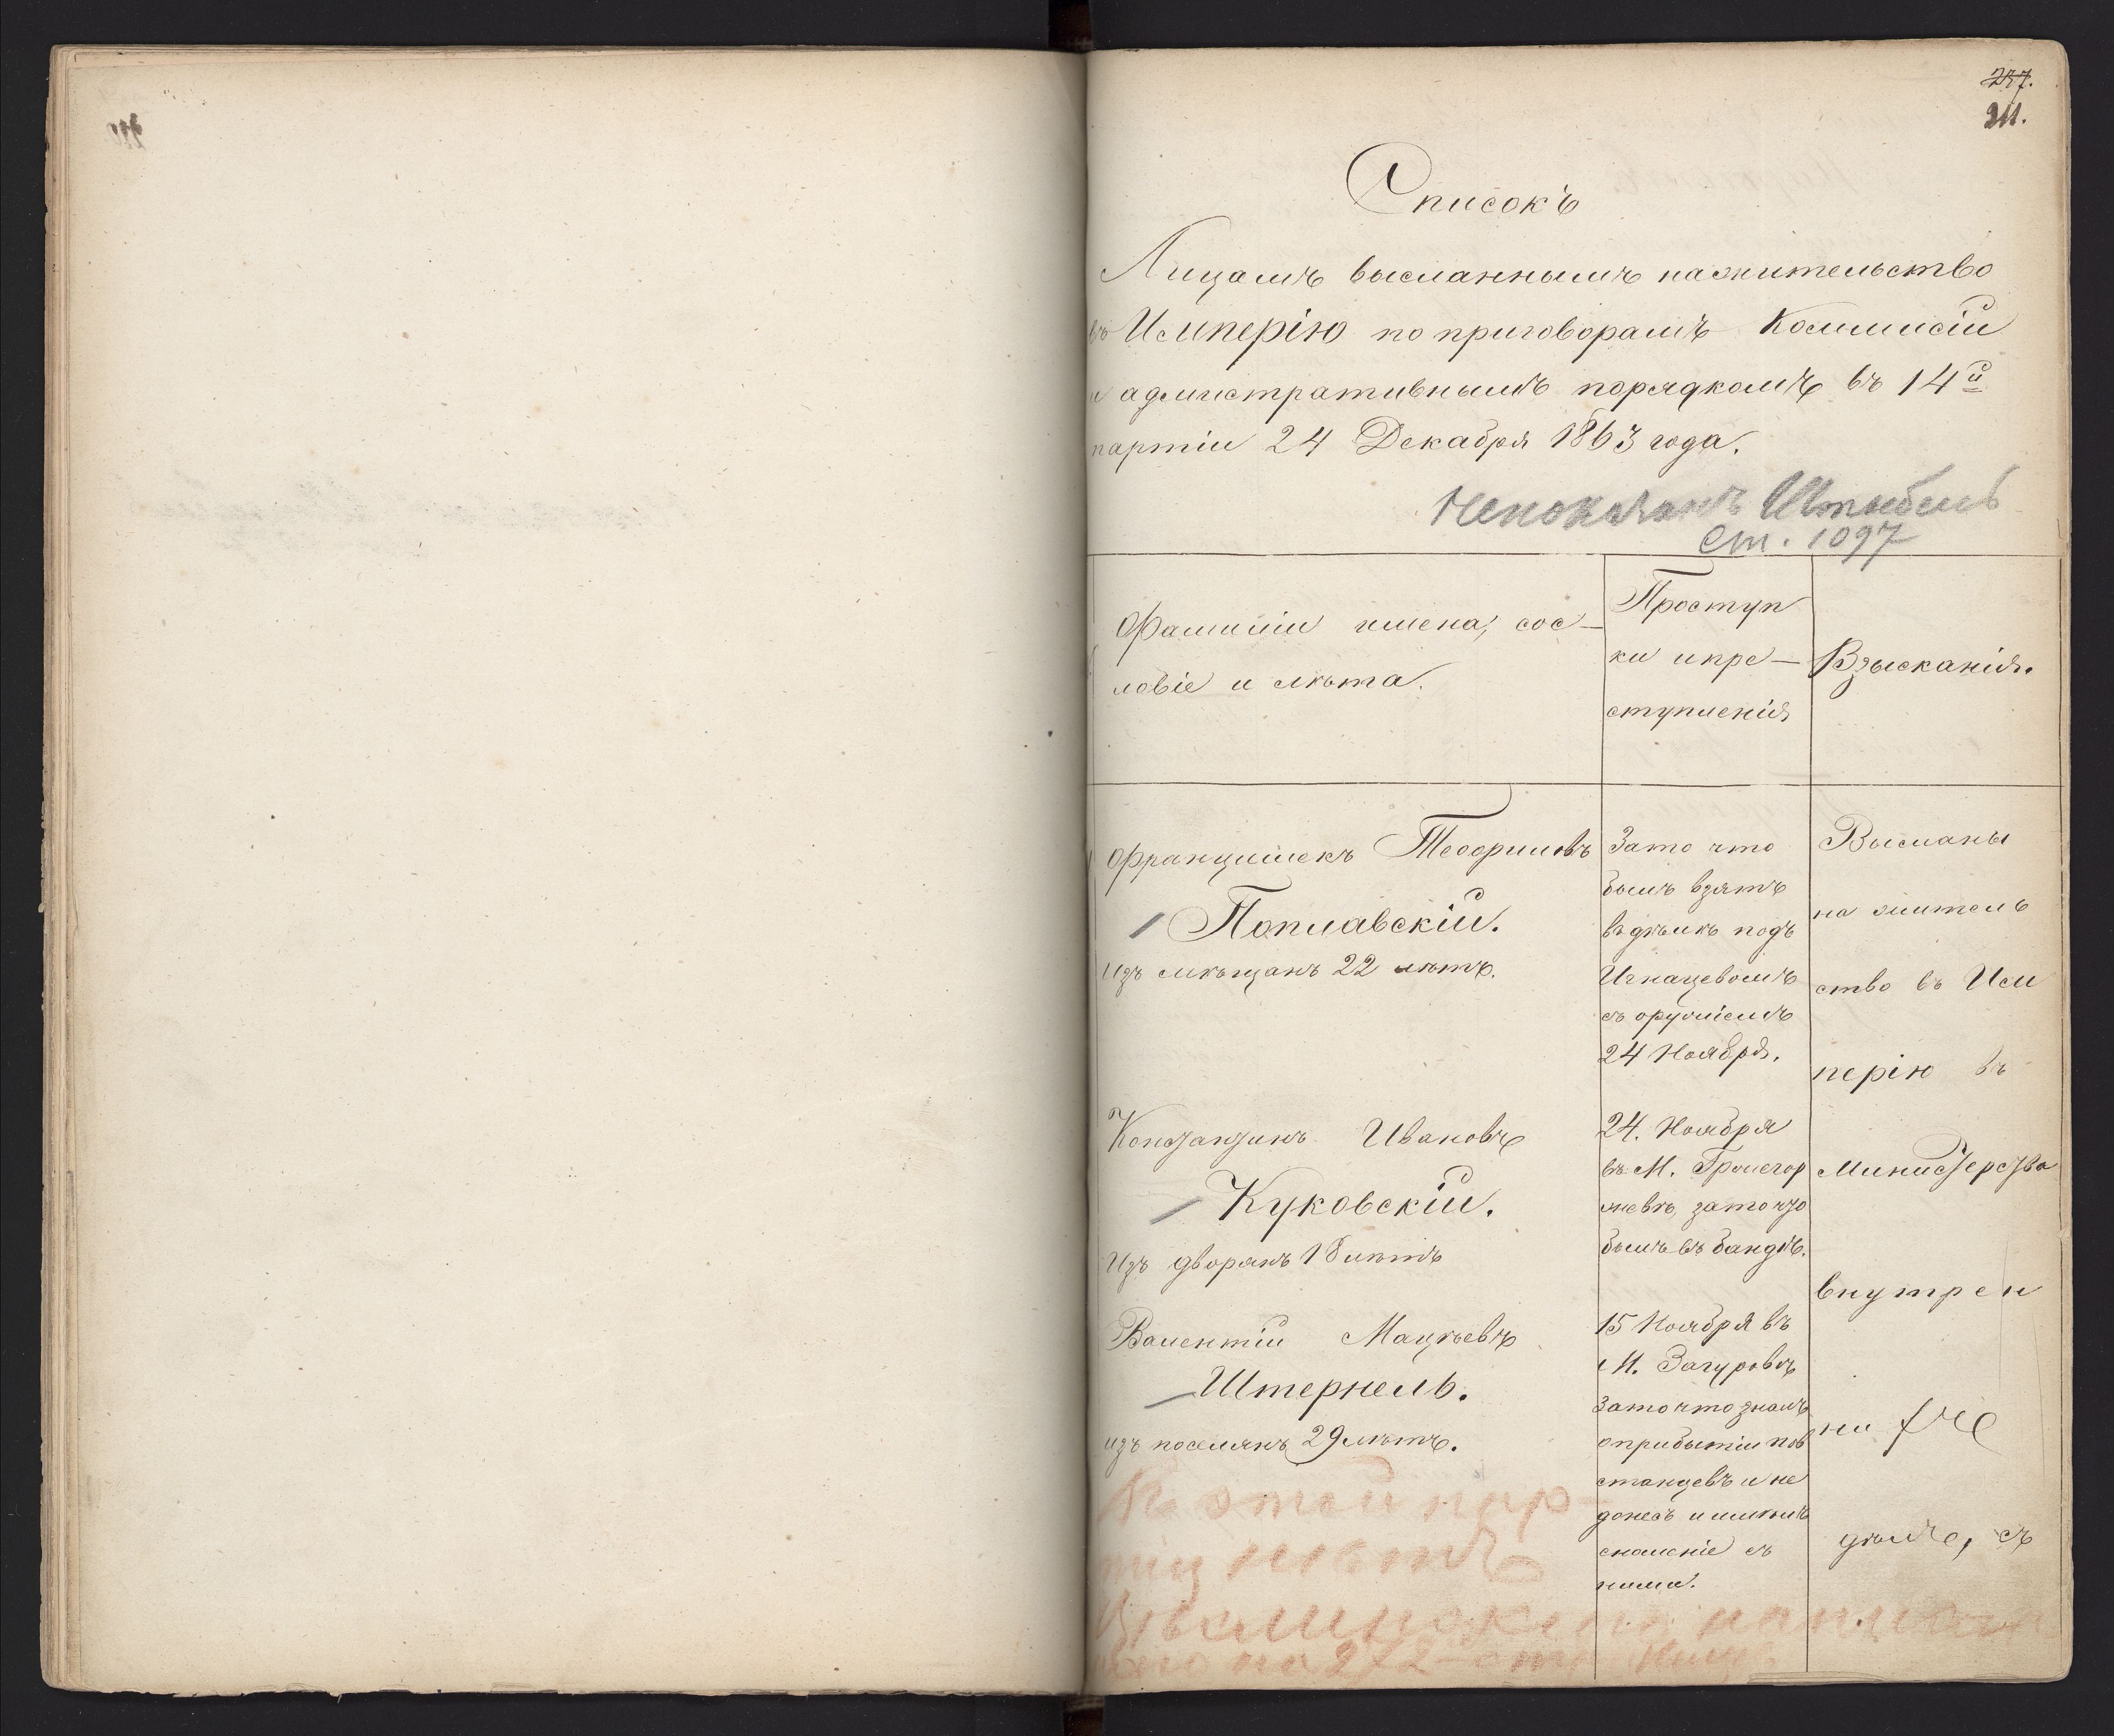 237.
311.
Списокъ
Лицамъ высланнымъ на жительство
въ Имперію по приговорамъ Коммисіи
и админстративнымъ порядкомъ въ 14й
партіи 24 Декабря 1863 года.
Непоказанъ Штыбель
Ст. 1097
Фамиліи имена, сос-
ловіе и лѣта.
Проступ
ки и пре-
ступленія
Взысканія.
Францишекъ Теофиловъ
Поплавскій.
изъ мѣщанъ 22 лѣтъ.
За то что
былъ взятъ
въ дѣлѣ подъ
Игнацевомъ
съ оружіемъ
24 Ноября.
Константинъ Ивановъ
Куковскій.
Изъ дворянъ 18 лѣтъ
24. Ноября
въ М.
за то что
былъ въ бандѣ.
Валентій Мацѣевъ
Штернель.
изъ поселянъ 29 лѣтъ.
15 Ноября въ
М. Загуровъ
За то что зналъ
о прибытіи пов
станцевъ и не
донесъ и имѣлъ
сношеніе съ
ними.
Высланы
на житель
ство въ Им
перію въ
министерство
внутрен
ни
дѣлъ, съ
Въ этой пар-
тіи нѣтъ
на 272